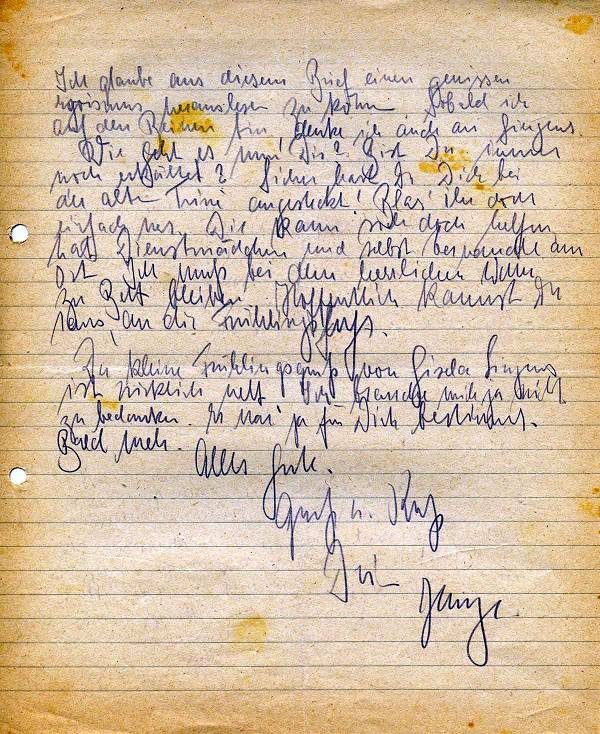 Ich glaube aus diesem Brief einen gewissen
herauslesen zu könn Sobald ich
auf den Beinen bin, denke ich auch an Singens.
Wie geht es nun Dir? Bist Du immer
noch erkältet? Sicher hast Du Dich bei
der alten angesteckt! Blas' ihr doch
einfach was. Die kann sich doch helfen
hat Dienstmädchen und selbst Verwandte am
Ort. Ich muß bei dem herrlichen
zu Bett bleiben. Hoffentlich kannst Du
raus, an die Frühlingsluft.
Der kleine Frühlingsgruß von Gisela Singens
ist wirklich nett. Ich brauche mich ja nicht
zu bedanken. Er war ja für Dich bestimmt.
Bald mehr.
Alles Gute.
Gruß u. Kuß
Dein
Junge.